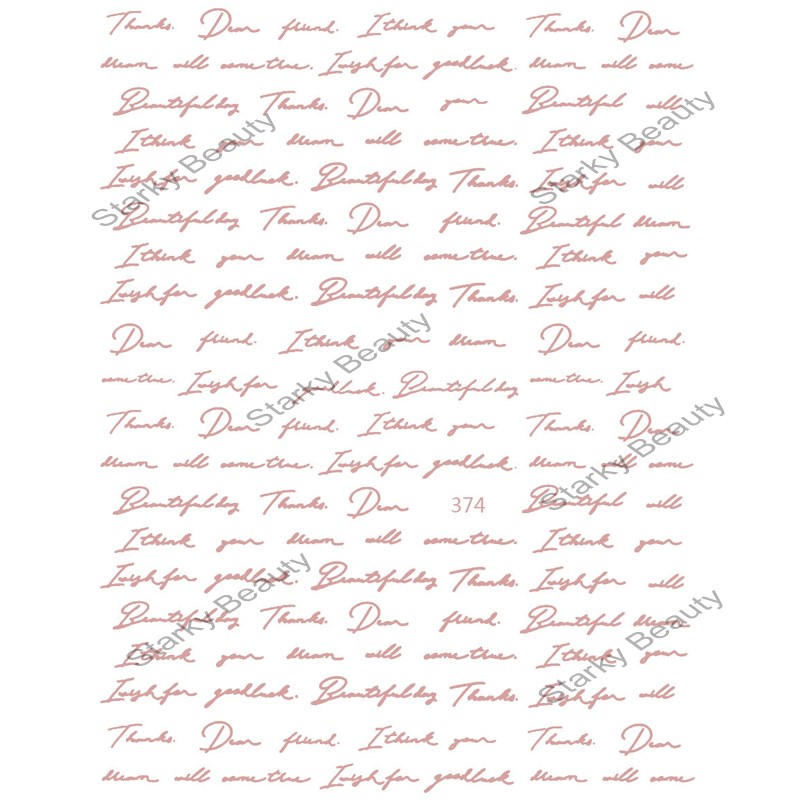 Thanks. Dear friend. I think your Thanks. Dear
dream will come true. I wish for good luck. dream will come
Beautiful day Thanks. Dear your Beautiful will
I think your dream will come true. I think your
I wish for good luck. Beautiful day Thanks. I wish for will
Beautiful day Thanks. Dear friend. Beautiful dream
I think your dream will come true. I think your
I wish for good luck. Beautiful day Thanks. I wish for will
Dear friend. I think your dream Dear friend.
come true. I wish for good luck. Beautiful day come true. I wish
Thanks. Dear friend. I think your Thanks. Dear
dream will come true. I wish for good luck. dream will come
Beautiful day Thanks. Dear 374 Beautiful will
I think your dream will come true. I think your
I wish for good luck. Beautiful day Thanks. I wish for will
Beautiful day Thanks. Dear friend. Beautiful dream
I think your dream will come true. I think your
I wish for good luck. Beautiful day Thanks. I wish for will
Thanks. Dear friend. I think your Thanks. Dear
dream will come true. I wish for good luck. dream will come
Starky Beauty
Starky Beauty
Starky Beauty
Starky Beauty
Starky Beauty
Starky Beauty